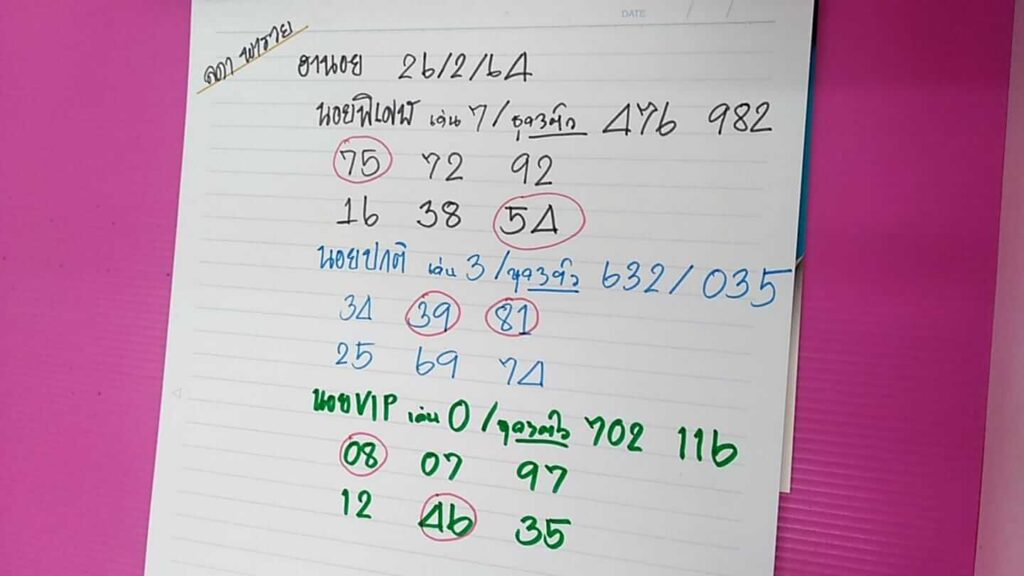 DATE / /
ลดา พารวย
ฮานอย 26/2/64
นอยพิเศษ เด่น 7 / ชุด3ตัว 476 982
75 72 92
16 38 54
นอยปกติ เด่น 3 / ชุด3ตัว 632 / 035
34 39 81
25 69 74
นอยVIP เด่น 0 / ชุด3ตัว 702 116
08 07 97
12 46 35